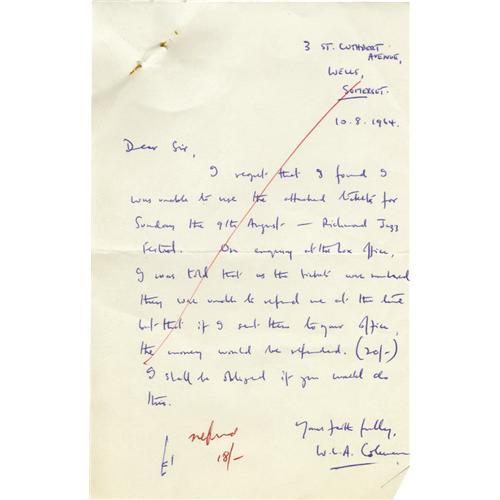 3 ST. CUTHBERT
AVENUE,
WELLS,
SOMERSET.
10.8.1964.
Dear Sir,
I regret that I found I
was unable to use the attached tickets for
Sunday the 9th August — Richmond Jazz
Festival. On enquiry at the box office,
I was told that as the tickets were numbered
they were unable to refund me at the time
but that if I sent them to your office,
the money would be refunded. (20/-)
I shall be obliged if you would do
this.
Yours faithfully,
W.L.A. Coleman
refund
18/-
£1